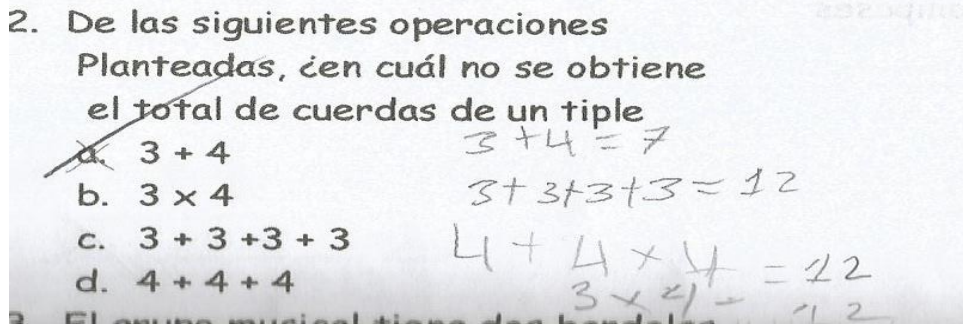 2. De las siguientes operaciones
Planteadas, ¿en cuál no se obtiene
el total de cuerdas de un tiple
a. 3 + 4
3 + 4 = 7
b. 3 x 4
3 + 3 + 3 + 3 = 12
c. 3 + 3 +3 + 3
4 + 4 + 4 = 12
d. 4 + 4 + 4
3 x 4 = 12